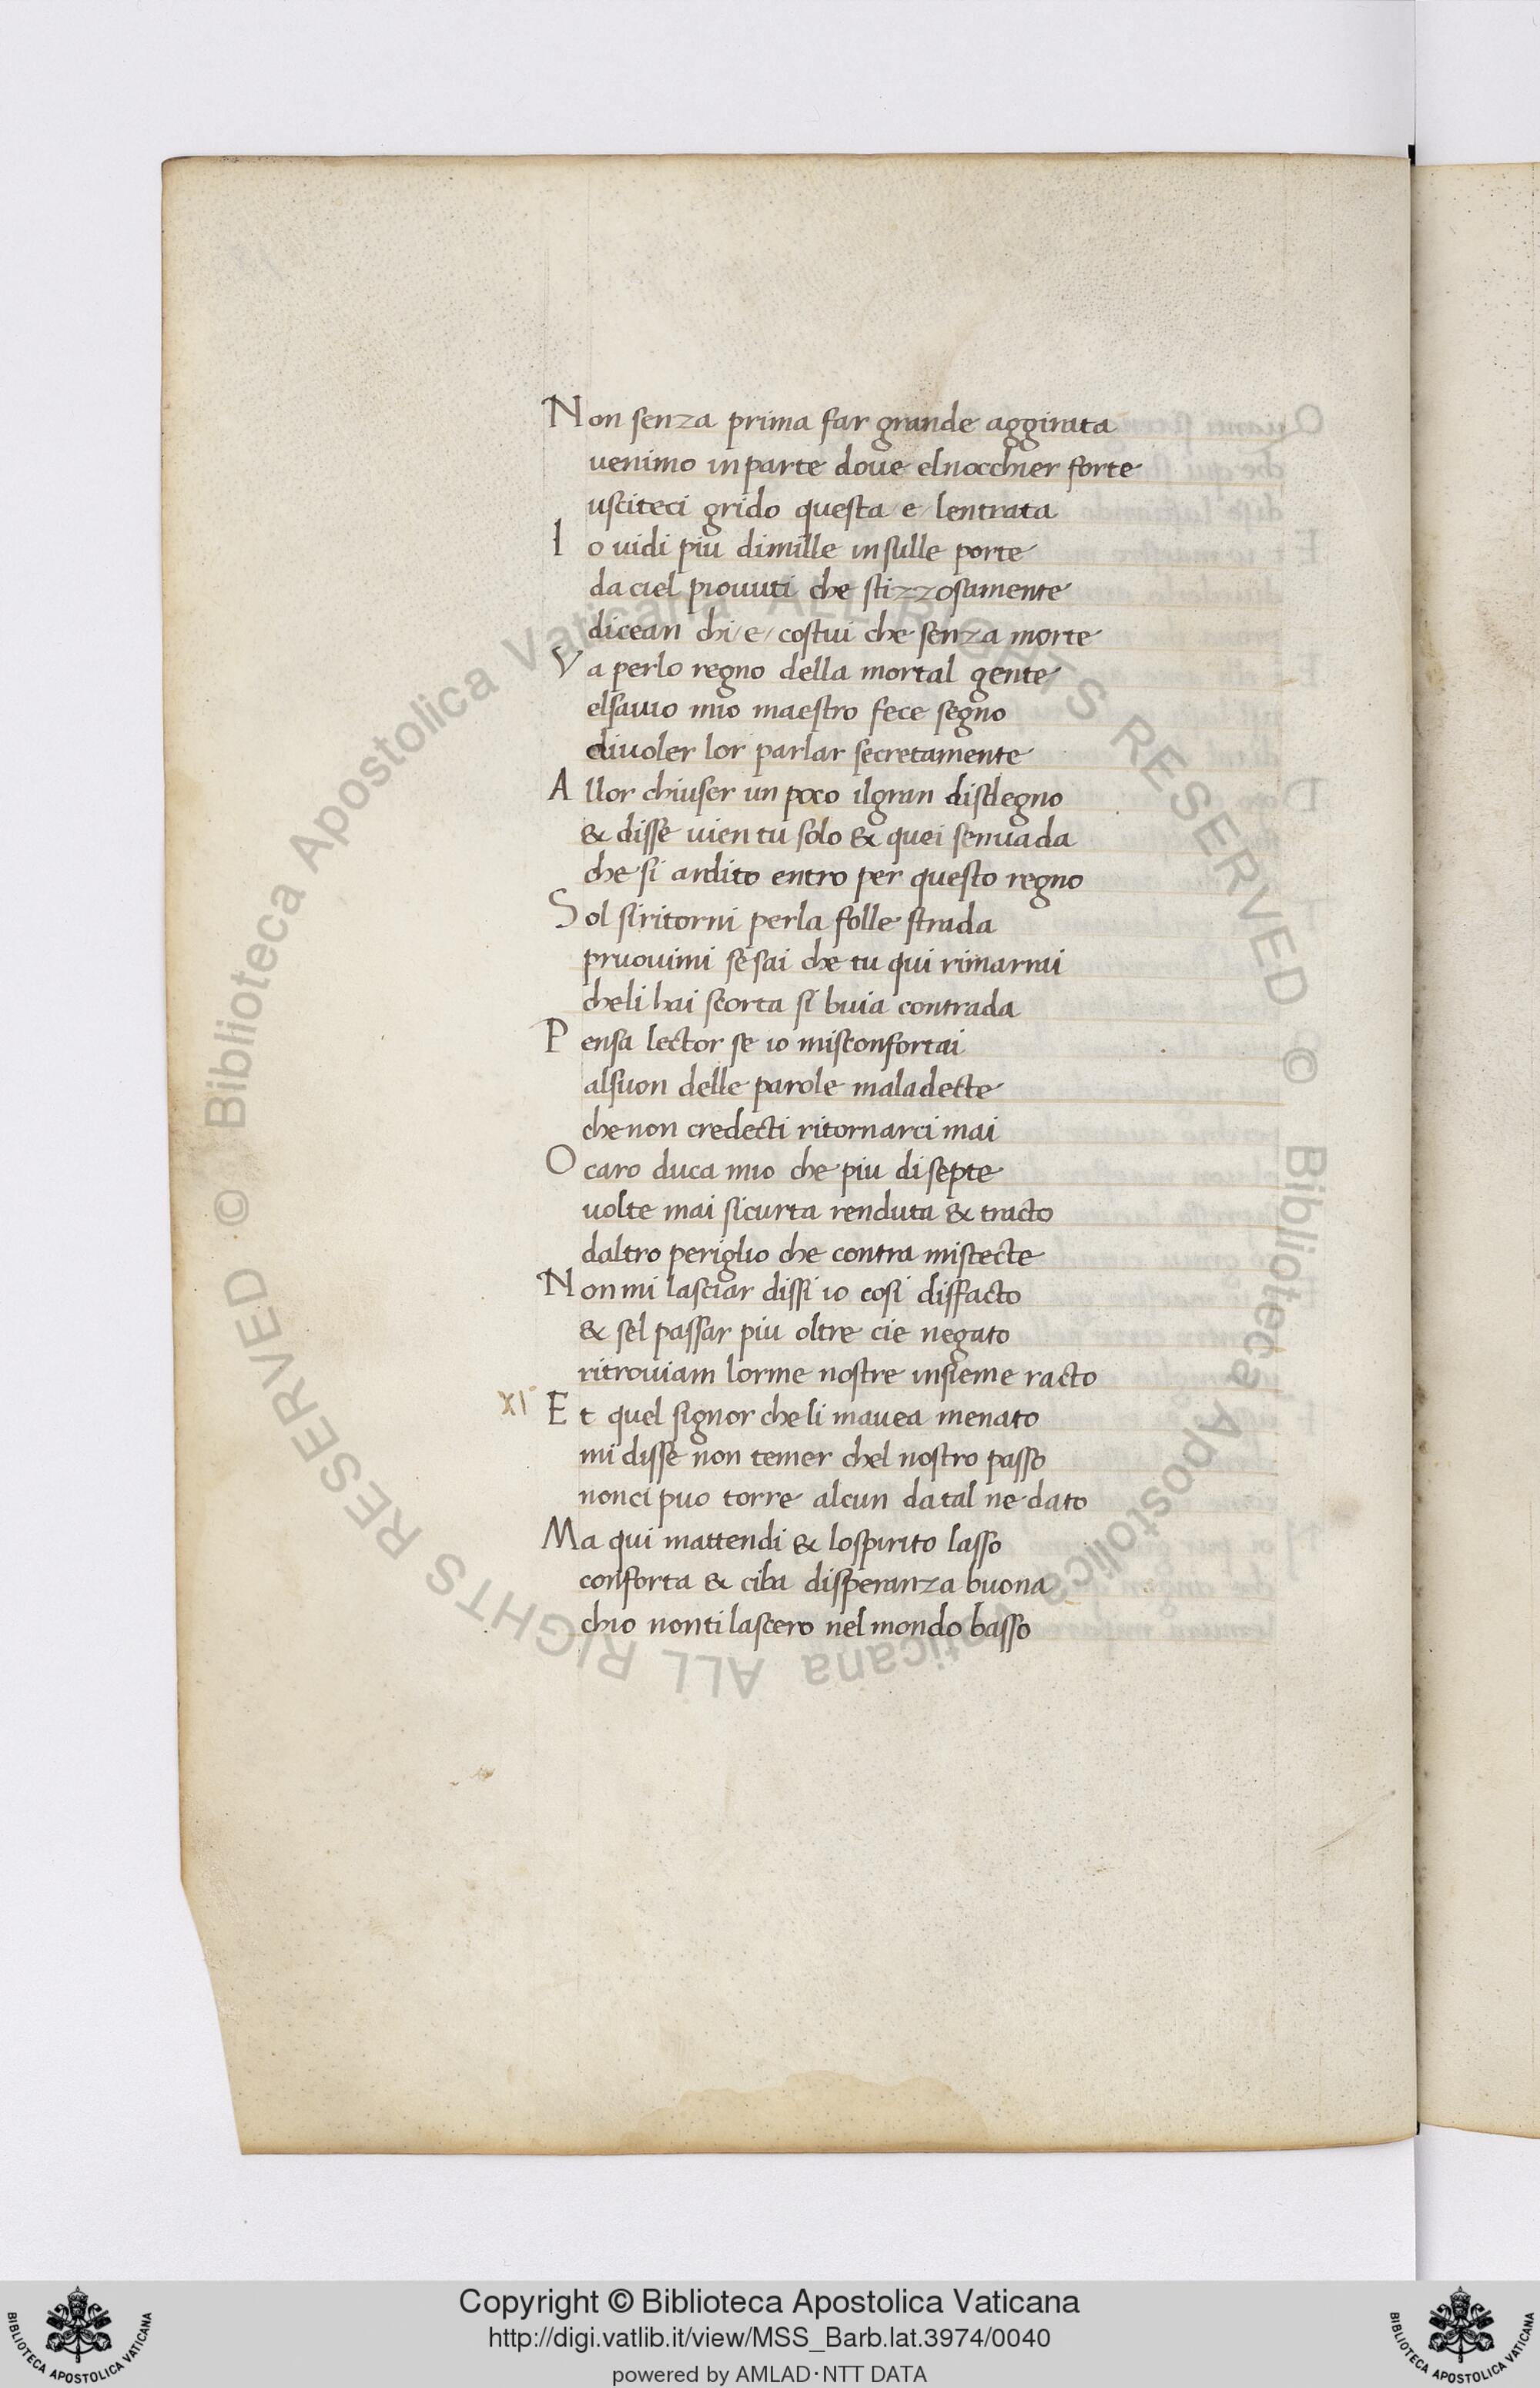 Non senza prima far grande aggirata
uenimo inparte doue elnocchier forte
usciteci grido questa /e/ lentrata
Io uidi piu dimille insulle porte
da ciel piouuti che stizzosamente
dicean chi /e/ costui che senza morte
Va perlo regno della mortal gente
elsauio mio maestro fece segno
diuoler lor parlar secretamente
Allor chiuser un poco ilgran disdegno
& disse uien tu solo & quei senuada
che si ardito entro per questo regno
Sol siritorni perla folle strada
pruouimi se sai che tu qui rimarrai
cheli hai scorta si buia contrada
Pensa lector se io misconfortai
alsuon delle parole maladecte
che non credecti ritornarci mai
O caro duca mio che piu disepte
uolte mai sicurta renduta & tracto
daltro periglio che contra mistecte
Non mi lasciar dissi io cosi diffacto
& sel passar piu oltre cie negato
ritrouiam lorme nostre insieme racto
XI Et quel signor cheli mauea menato
mi disse non temer chel nostro passo
nonci puo torre alcun da tal ne dato
Ma qui mattendi & lospirito lasso
conforta & ciba disperanza buona
chio nonti lascero nel mondo basso
© Biblioteca Apostolica Vaticana ALL RIGHTS RESERVED © Biblioteca Apostolica Vaticana ALL RIGHTS RESERVED
BIBLIOTECA APOSTOLICA VATICANA
Copyright © Biblioteca Apostolica Vaticana
http://digi.vatlib.it/view/MSS_Barb.lat.3974/0040
powered by AMLAD·NTT DATA
BIBLIOTECA APOSTOLICA VATICANA